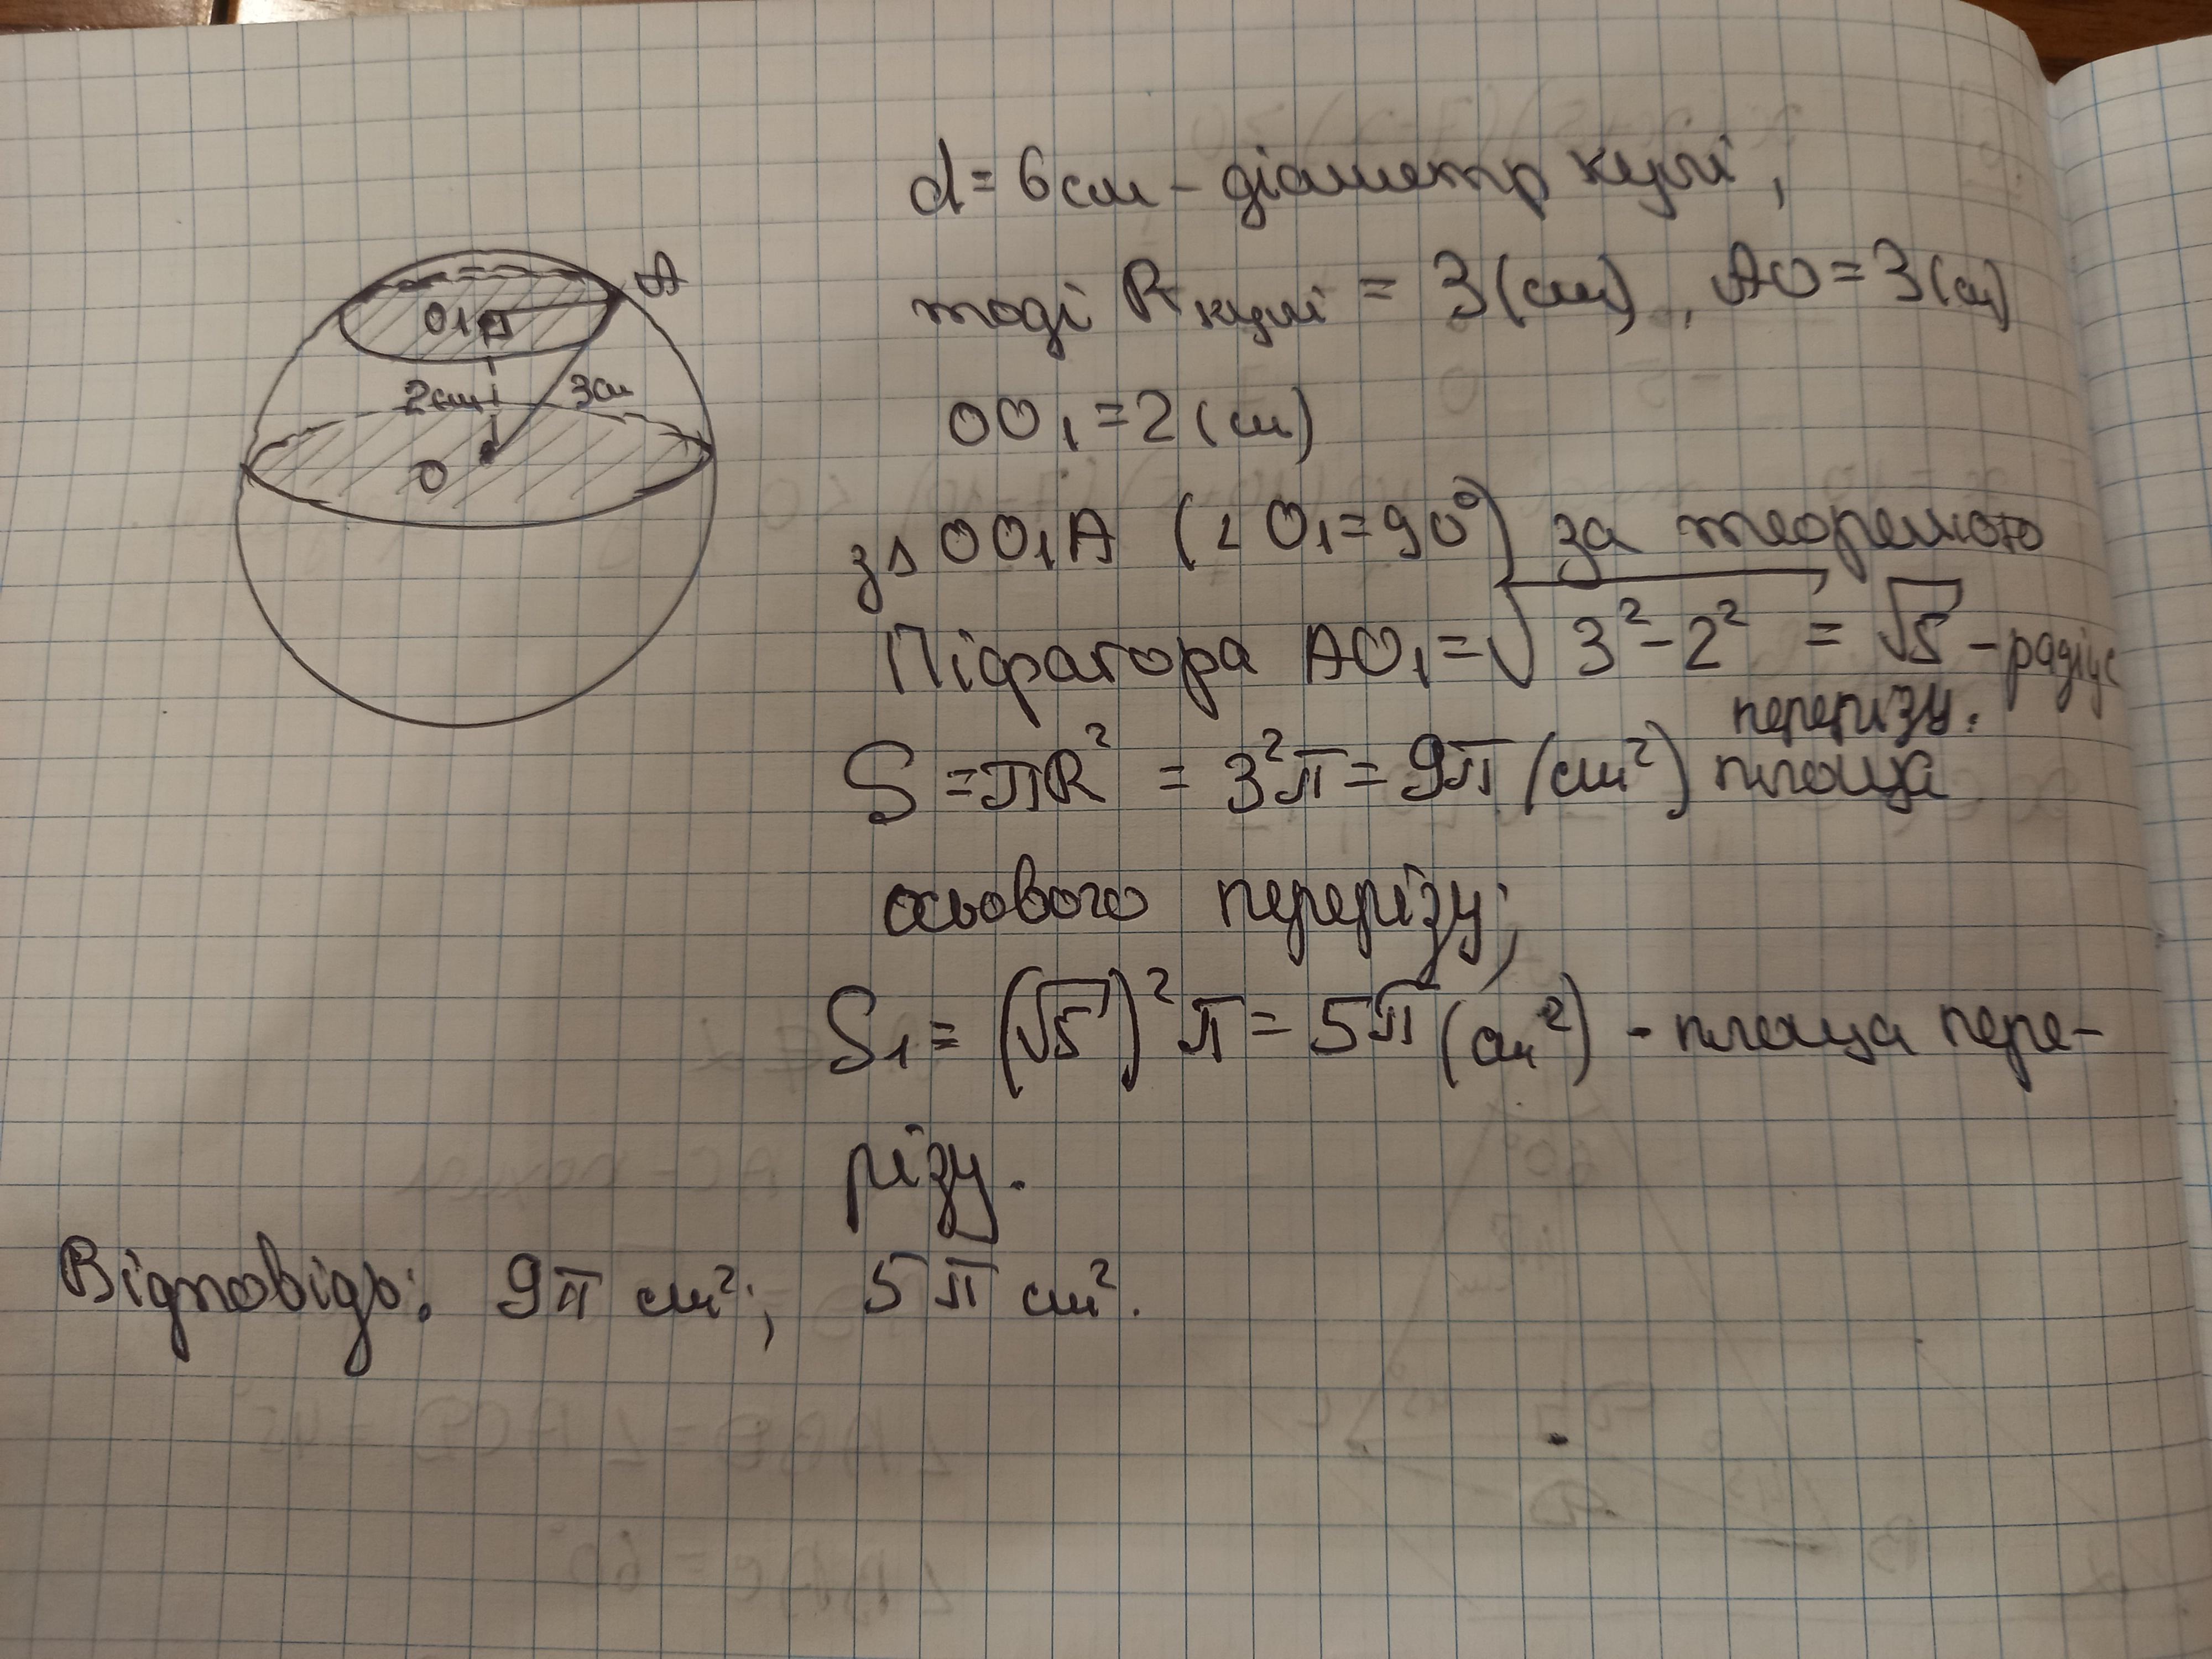 d = 6 см – діаметр кулі,
тоді R кулі = 3 (см), AO = 3 (см)
A
O1
2 см
3 см
O
OO₁ = 2 (см)
з Δ OO₁A (∠ O₁ = 90°) за теоремою
Піфагора AO₁ = √(3² – 2²) = √5 – радіус
перерізу.
S = πR² = 3²π = 9π (см²) площа
осьового перерізу;
S₁ = (√5)²π = 5π (см²) – площа пере–
різу.
Відповідь: 9π см²; 5π см².